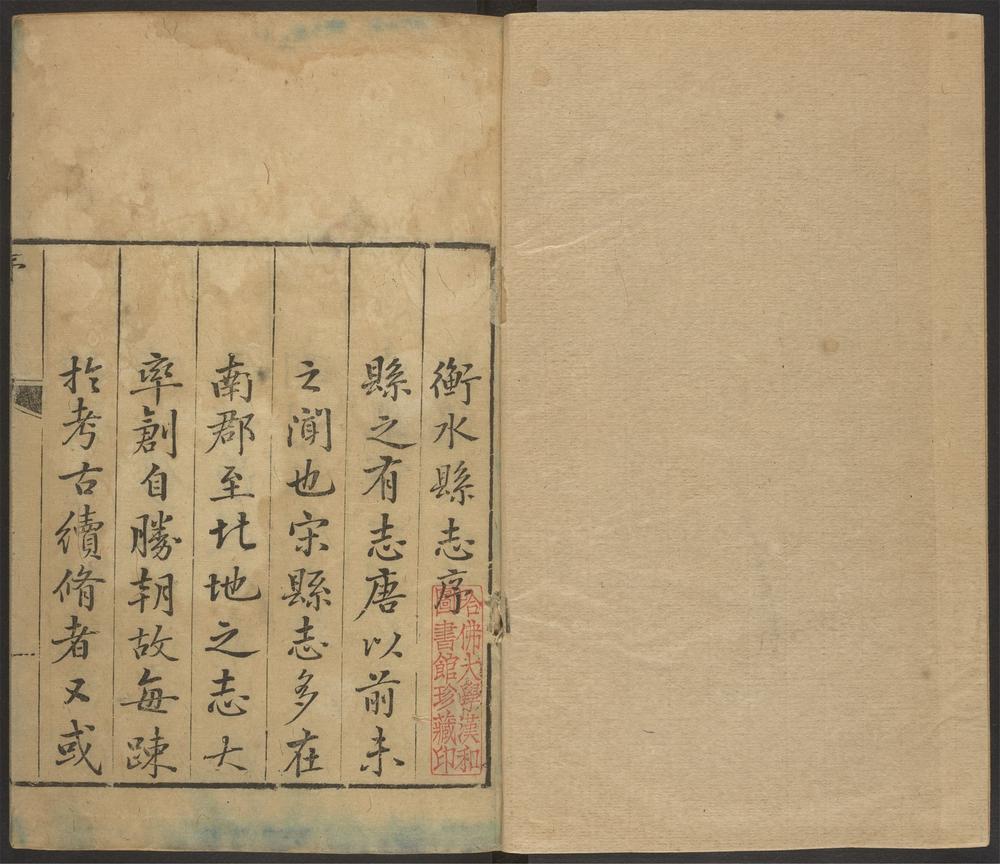 衡水縣志序
縣之有志唐以前未
之聞也宋縣志多在
南郡至北地之志大
率創自勝朝故每踈
於考古續脩者又或
哈佛大學漢和
圖書館珍藏印